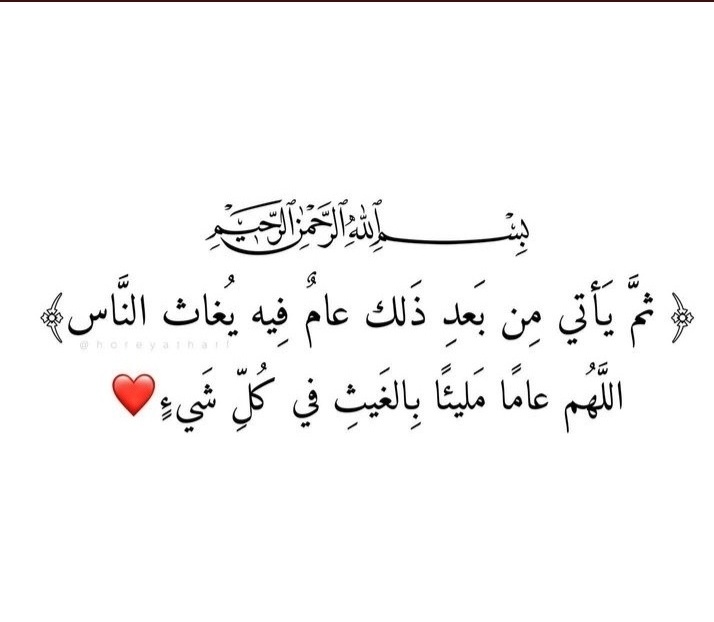 بِسْمِ اللَّهِ الرَّحْمَٰنِ الرَّحِيمِ
﴿ ثمَّ يَأتي مِن بَعدِ ذَلك عامٌ فِيه يُغاث النَّاس﴾
@horeyalharf
اللَّهُم عامًا مَليئًا بِالغَيثِ في كُلِّ شَيءٍ❤️